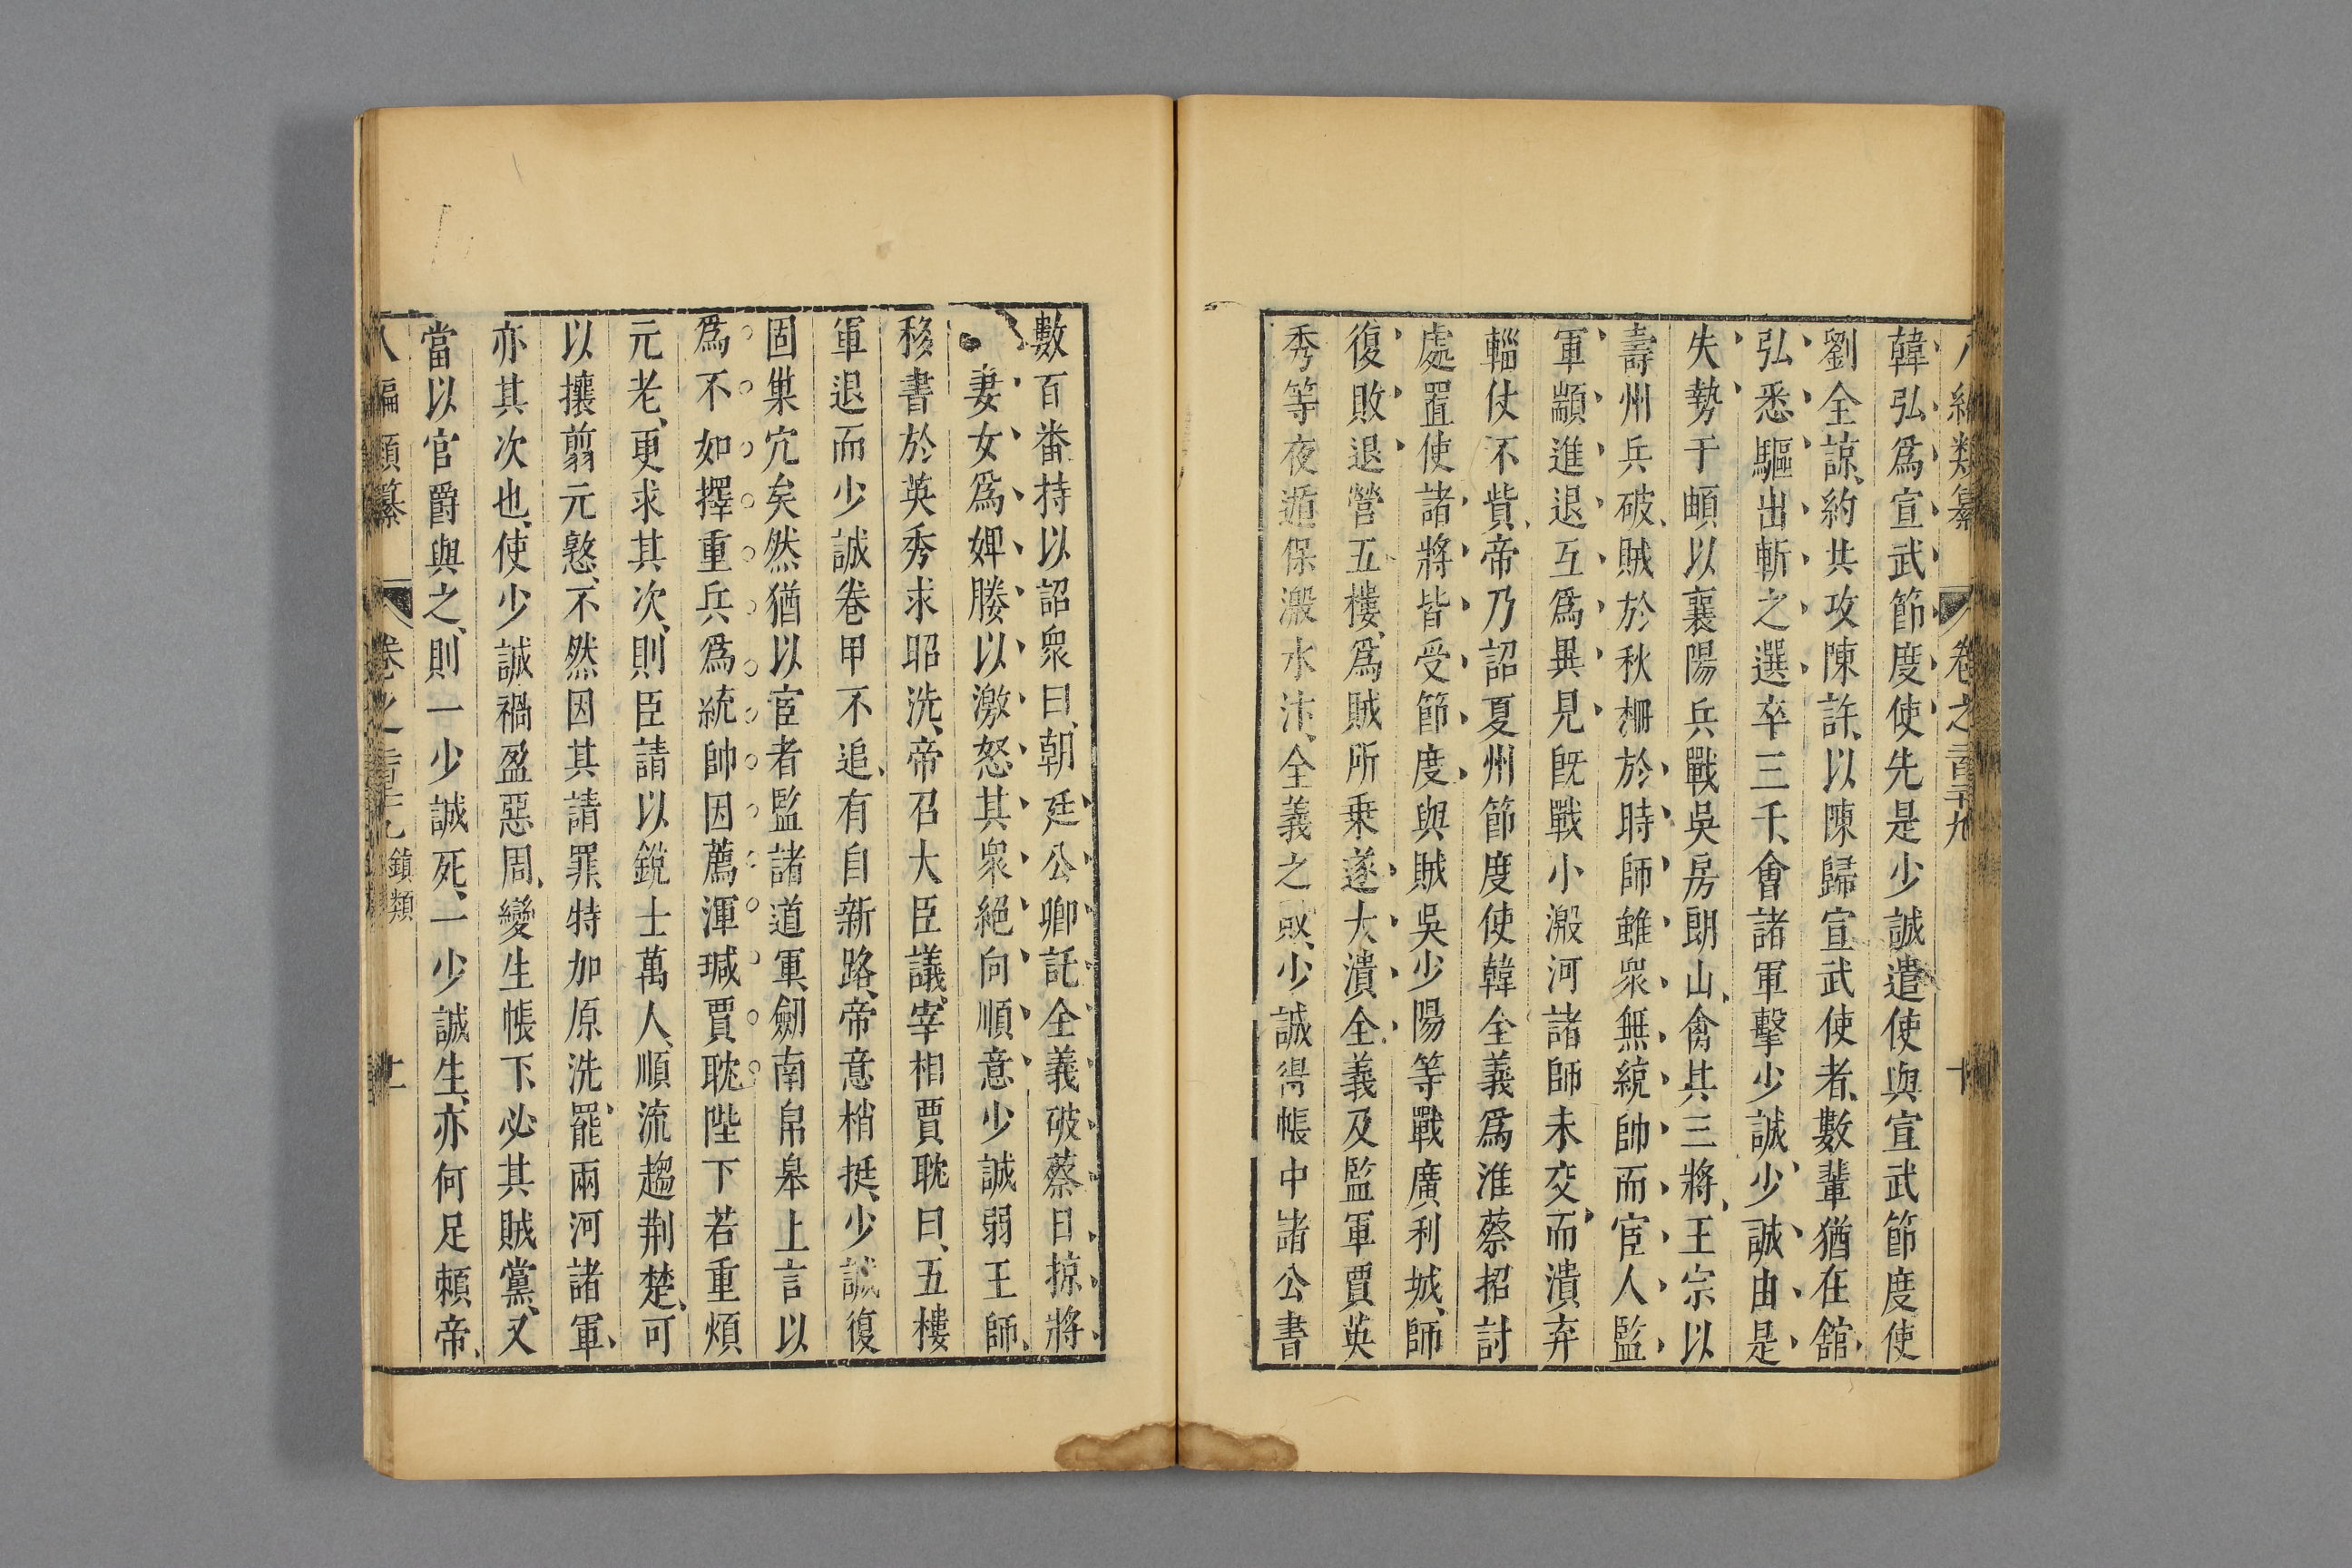 韓弘爲宣武節度使先是少誠遣使與宣武節度使
劉全諒、約共攻陳許、以陳歸宣武使者、數輩猶在舘、
弘悉驅出斬之選卒三千、會諸軍擊少誠、少誠由是
失勢于頔以襄陽兵戰吳房朗山、禽其三將、王宗以
壽州兵破、賊於秋柵於時師雖衆無統帥而宦人監
軍顓進退互爲異見旣戰小溵河諸師未交而潰弃
輜仗不貲、帝乃詔夏州節度使韓全義爲淮蔡招討
處置使諸將皆受節度與賊吳少陽等戰廣利城、師
復敗退營五樓、爲賊所乗遂大潰全義及監軍賈英
秀等夜遁保溵水汴、全義之敗、少誠得帳中諸公書
八編類纂 卷之 十
數百番持以詔衆曰、朝廷公卿託全義破蔡日掠將
妻女爲婢媵以激怒其衆絕向順意少誠弱王師、
移書於英秀求昭洗、帝召大臣議、宰相賈耽曰、五樓
軍退而少誠卷甲不追、有自新路、帝意梢挺、少誠復
固巢穴矣然猶以宦者監諸道軍、劒南帛臯上言以
爲不如擇重兵爲統帥因薦渾瑊賈耽陛下若重煩
元老、更求其次、則臣請以銳士萬人、順流趨荆楚、可
以攘翦元憝、不然因其請罪特加原洗、罷兩河諸軍、
亦其次也、使少誠禍盈惡周、變生帳下、必其賊黨、又
當以官爵與之、則一少誠死、一少誠生、亦何足頼帝、
八編類纂 卷之 鎮類 十一